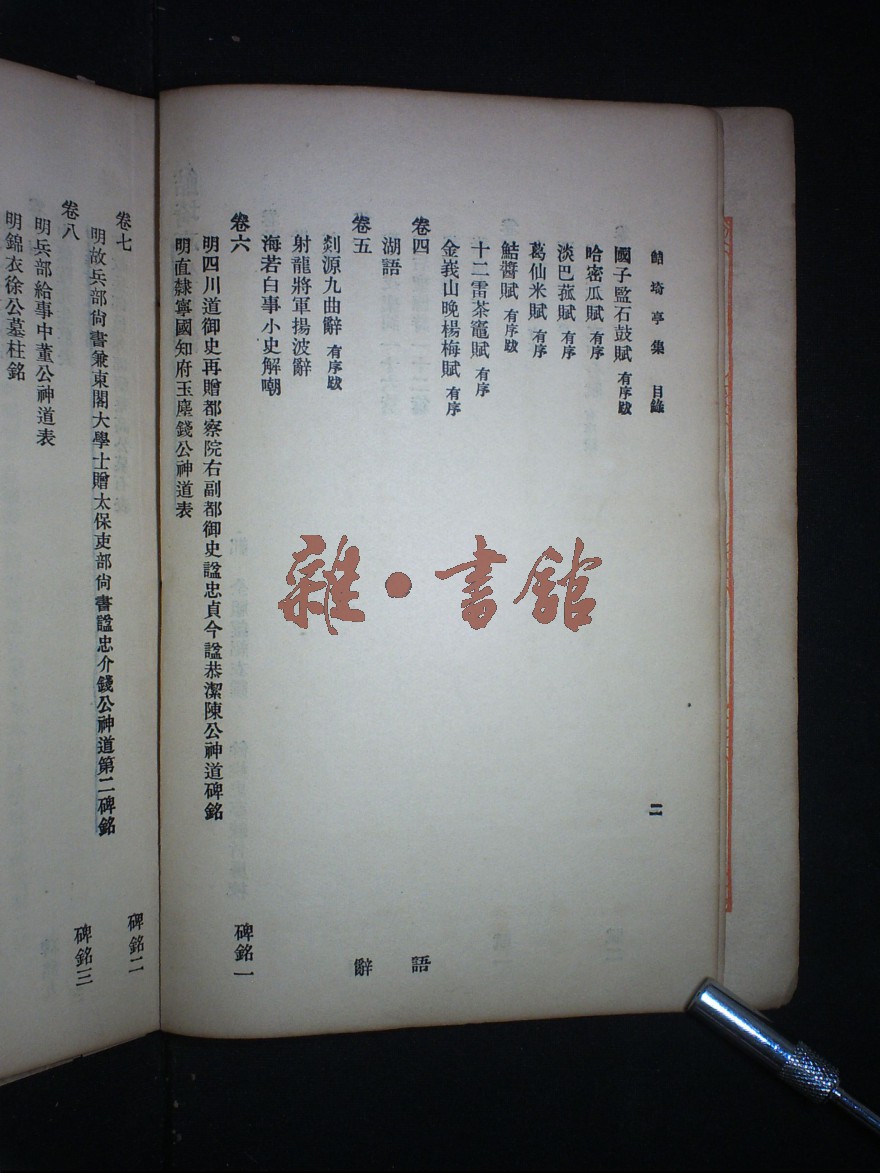 鮚埼亭集 目錄 二
國子監石鼓賦 有序跋
哈密瓜賦 有序
淡巴菰賦 有序
葛仙米賦 有序
鮚醬賦 有序跋
十二雷茶竈賦 有序
金峩山晚楊梅賦 有序
卷四 語
湖語
卷五 辭
剡源九曲辭 有序跋
射龍將軍揚波辭
海若白事小史解嘲
卷六 碑銘一
明四川道御史再贈都察院右副都御史諡忠貞今諡恭潔陳公神道碑銘
明直隸寧國知府玉塵錢公神道表
卷七 碑銘二
明故兵部尙書兼東閣大學士贈太保吏部尙書諡忠介錢公神道第二碑銘
卷八 碑銘三
明兵部給事中董公神道表
明錦衣徐公墓柱銘
雜·書館